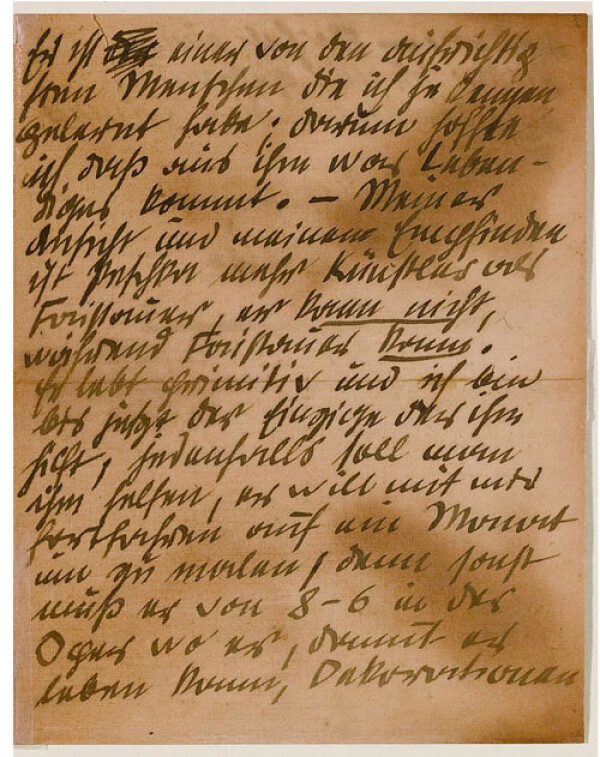 Er ist einer von den aufrichtig-
sten Menschen die ich je kennen
gelernt habe; darum hoffte
ich daß aus ihm was Leben-
diges kommt. – Meiner
Ansicht und meinem Empfinden
ist Peschka mehr Künstler als
Faistauer, er kann nicht,
während Faistauer kann.
Er lebt primitiv und ich bin
bis jetzt der Einzige der ihn
sieht, jedenfalls soll man
ihm helfen, er will mit mir
fortfahren auf ein Monat
um zu malen, denn sonst
muß er von 8–6 in der
Oper wo er, damit er
leben kann, Dekorationen